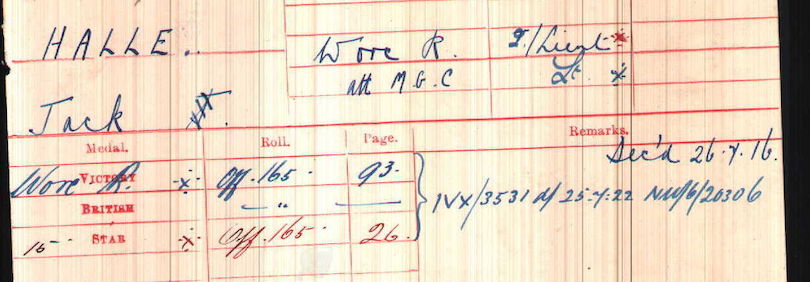 HALLE.. Worc R. T/Lieut x
att M.G.C Lt. x
Jack
Medal. Roll. Page. Remarks.
Dec'd 26.7.16.
Worc R. VICTORY x Off.165 93. IVX/3531 d/ 25-4-22 NW/6/20306
BRITISH — " —
15 STAR x Off.165 26.